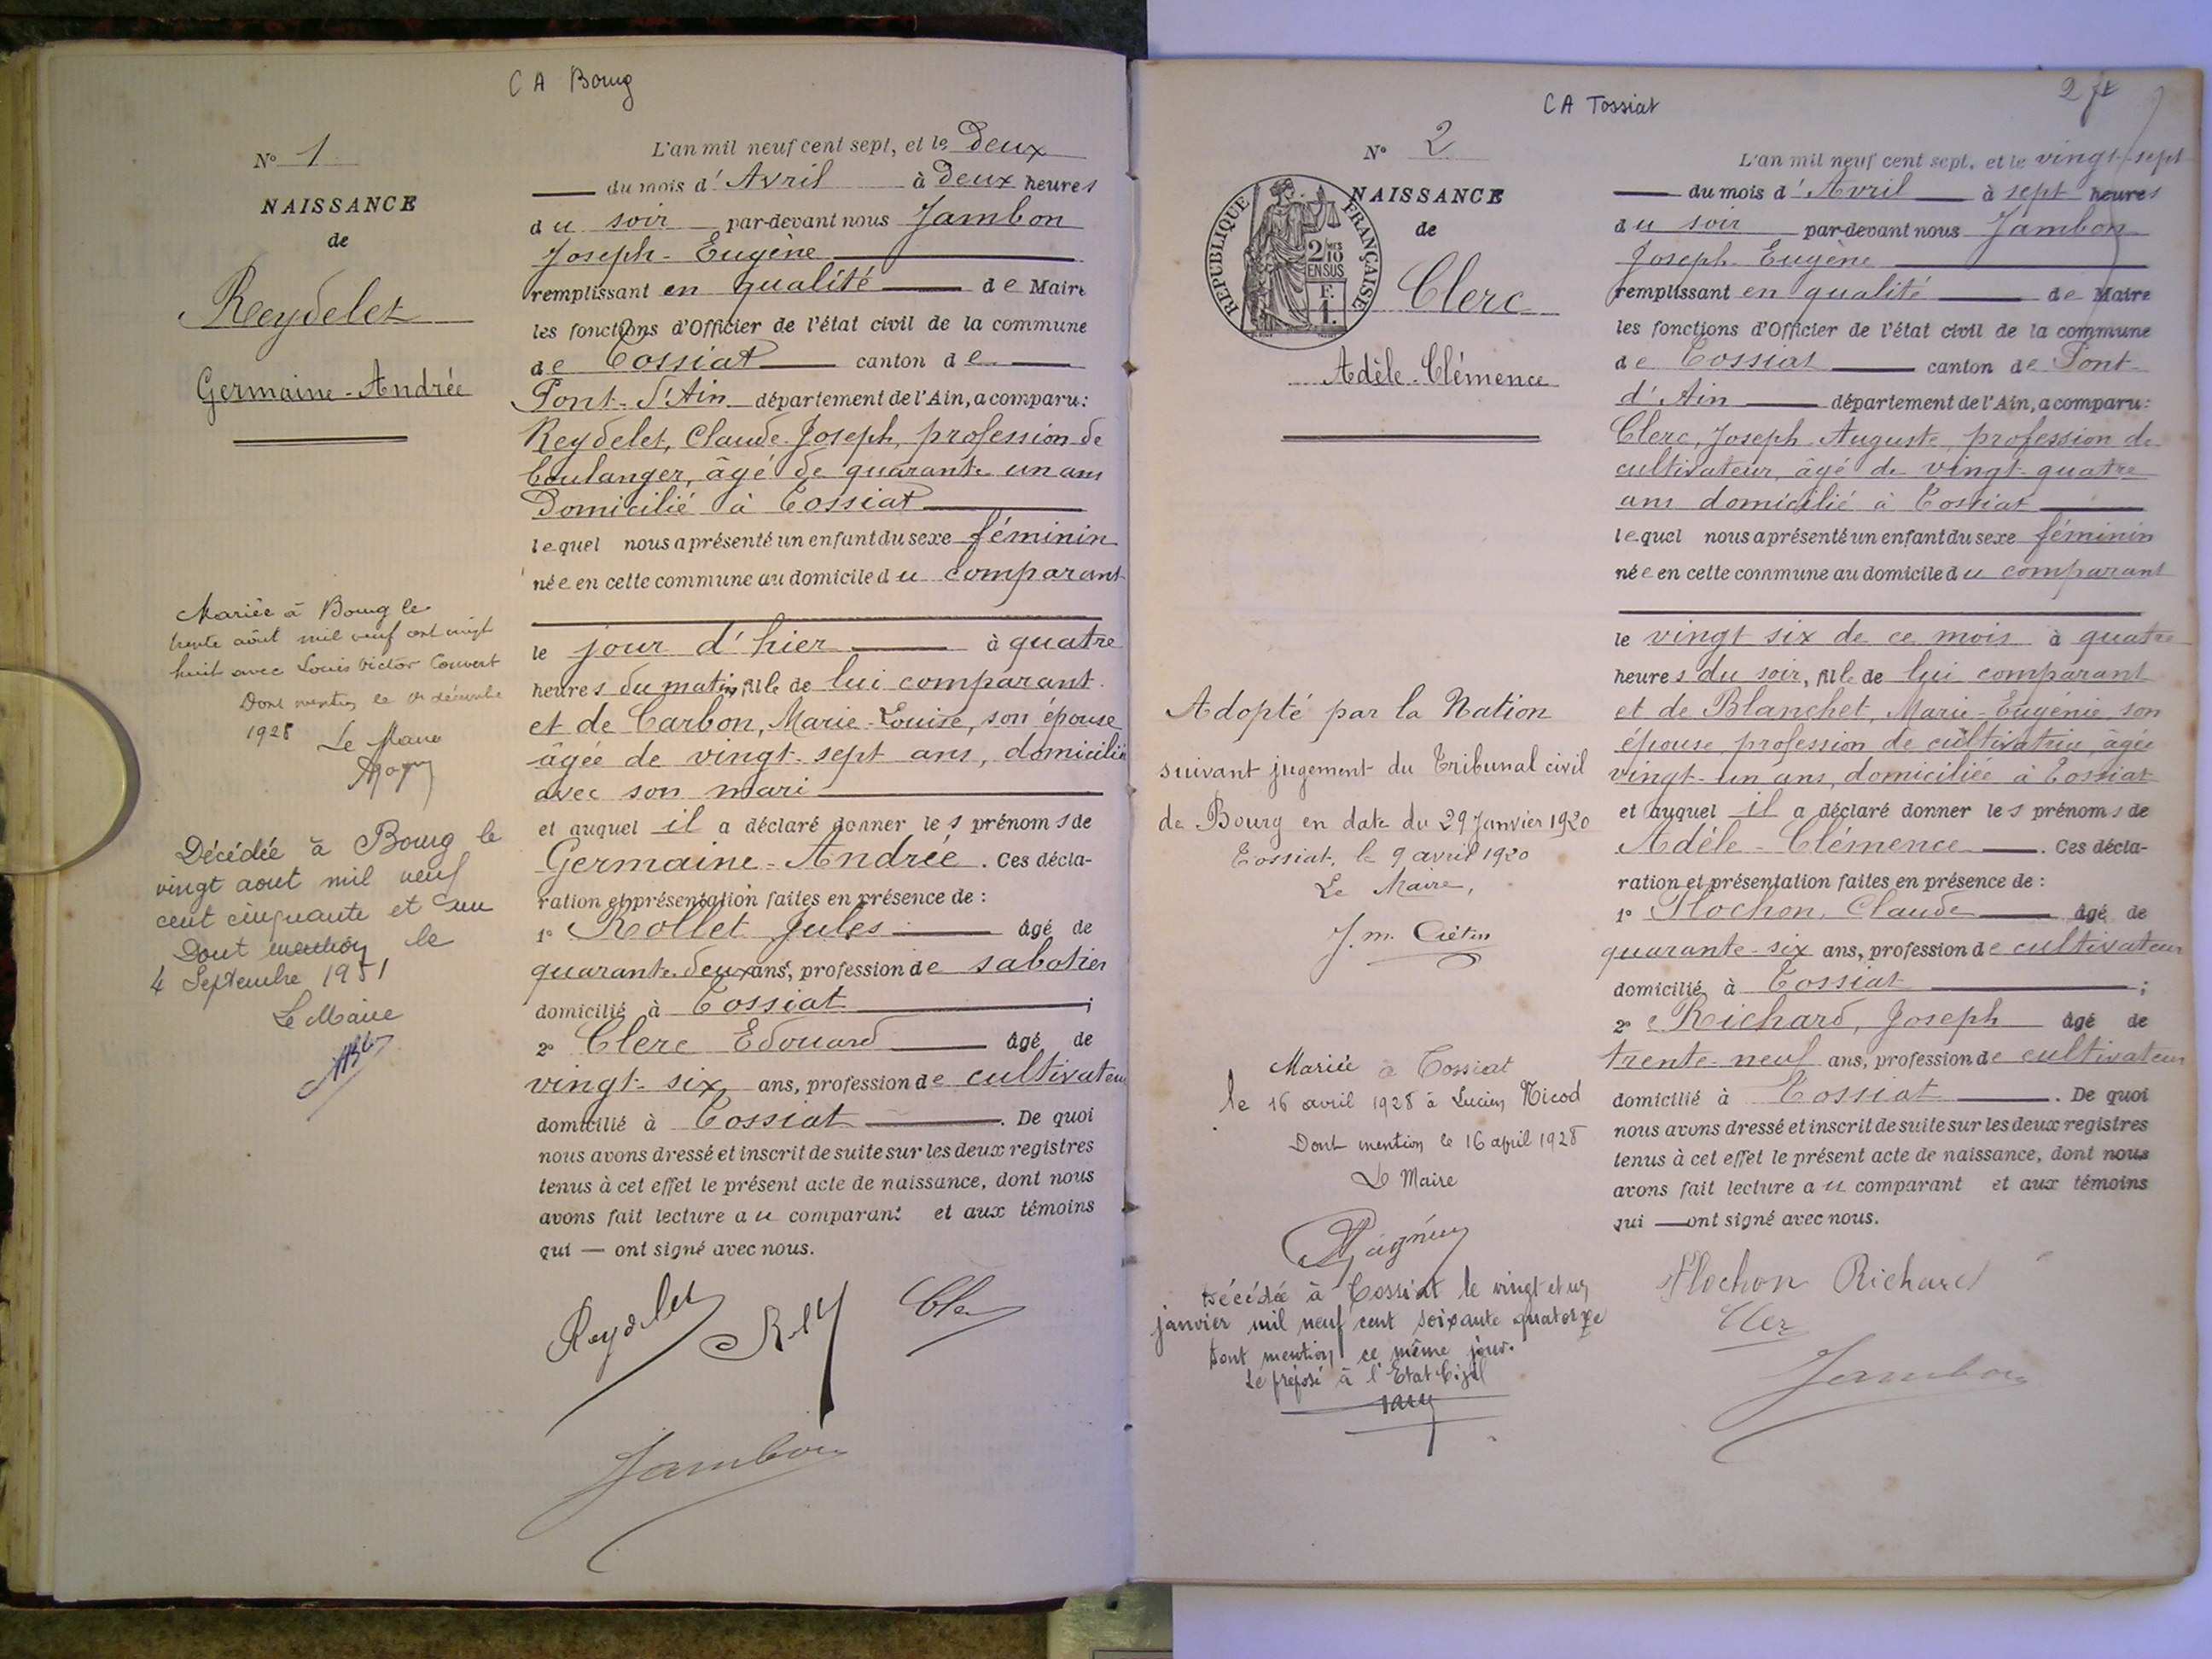 C A Bourg
N° 1
NAISSANCE
de
Reydelet
Germaine-Andrée
Mariée à Bourg le
trente août mil neuf cent vingt
huit avec Louis Victor Convert
Dont mention le décembre
1928 Le Maire
Décédée à Bourg le
vingt aout mil neuf
cent cinquante et un
Dont mention le
4 Septembre 1951
Le Maire
L'an mil neuf cent sept, et le Deux
du mois d'Avril à Deux heures
du soir par-devant nous Jambon
Joseph-Eugène
remplissant en qualité de Maire
les fonctions d'Officier de l'état civil de la commune
de Tossiat canton de
Pont-d'Ain département de l'Ain, a comparu:
Reydelet, Claude-Joseph, profession de
boulanger, âgé de quarante un ans
Domicilié à Tossiat
lequel nous a présenté un enfant du sexe féminin
née en cette commune au domicile du comparant
le jour d'hier à quatre
heures du matin, fille de lui comparant
et de Carbon, Marie-Louise, son épouse
âgée de vingt-sept ans, domiciliée
avec son mari
et auquel il a déclaré donner les prénoms de
Germaine-Andrée. Ces décla-
ration et présentation faites en présence de :
1° Rollet Jules âgé de
quarante-deux ans, profession de sabotier
domicilié à Tossiat ;
2° Clerc Edouard âgé de
vingt-six ans, profession de cultivateur
domicilié à Tossiat. De quoi
nous avons dressé et inscrit de suite sur les deux registres
tenus à cet effet le présent acte de naissance, dont nous
avons fait lecture au comparant et aux témoins
qui — ont signé avec nous.
Reydelet
Jambon
C A Tossiat
N° 2
NAISSANCE
de
RÉPUBLIQUE FRANÇAISE
2/10
EN SUS
F.
1.
Clerc
Adèle-Clémence
Adopté par la Nation
suivant jugement du Tribunal civil
de Bourg en date du 29 Janvier 1920
Tossiat, le 9 avril 1920
Le Maire,
J. M. Crétin
Mariée à Tossiat
le 16 avril 1928 à Lucien Nicod
Dont mention le 16 april 1928
Le Maire
Décédée à Tossiat le vingt et un
janvier mil neuf cent soixante quatorze
Dont mention ce même jour.
Le préposé à l'Etat Civil
L'an mil neuf cent sept, et le vingt-sept
du mois d'Avril à sept heures
du soir par-devant nous Jambon
Joseph-Eugène
remplissant en qualité de Maire
les fonctions d'Officier de l'état civil de la commune
de Tossiat canton de Pont-
d'Ain département de l'Ain, a comparu:
Clerc, Joseph-Auguste, profession de
cultivateur, âgé de vingt-quatre
ans domicilié à Tossiat
lequel nous a présenté un enfant du sexe féminin
née en cette commune au domicile du comparant
le vingt six de ce mois à quatre
heures du soir, fille de lui comparant
et de Blanchet, Marie-Eugénie, son
épouse profession de cultivatrice, âgée
vingt-un ans, domiciliée à Tossiat
et auquel il a déclaré donner les prénoms de
Adèle-Clémence. Ces décla-
ration et présentation faites en présence de :
1° Plochon, Claude âgé de
quarante-six ans, profession de cultivateur
domicilié à Tossiat ;
2° Richard, Joseph âgé de
trente-neuf ans, profession de cultivateur
domicilié à Tossiat. De quoi
nous avons dressé et inscrit de suite sur les deux registres
tenus à cet effet le présent acte de naissance, dont nous
avons fait lecture au comparant et aux témoins
qui — ont signé avec nous.
Plochon Richard
Clerc
Jambon